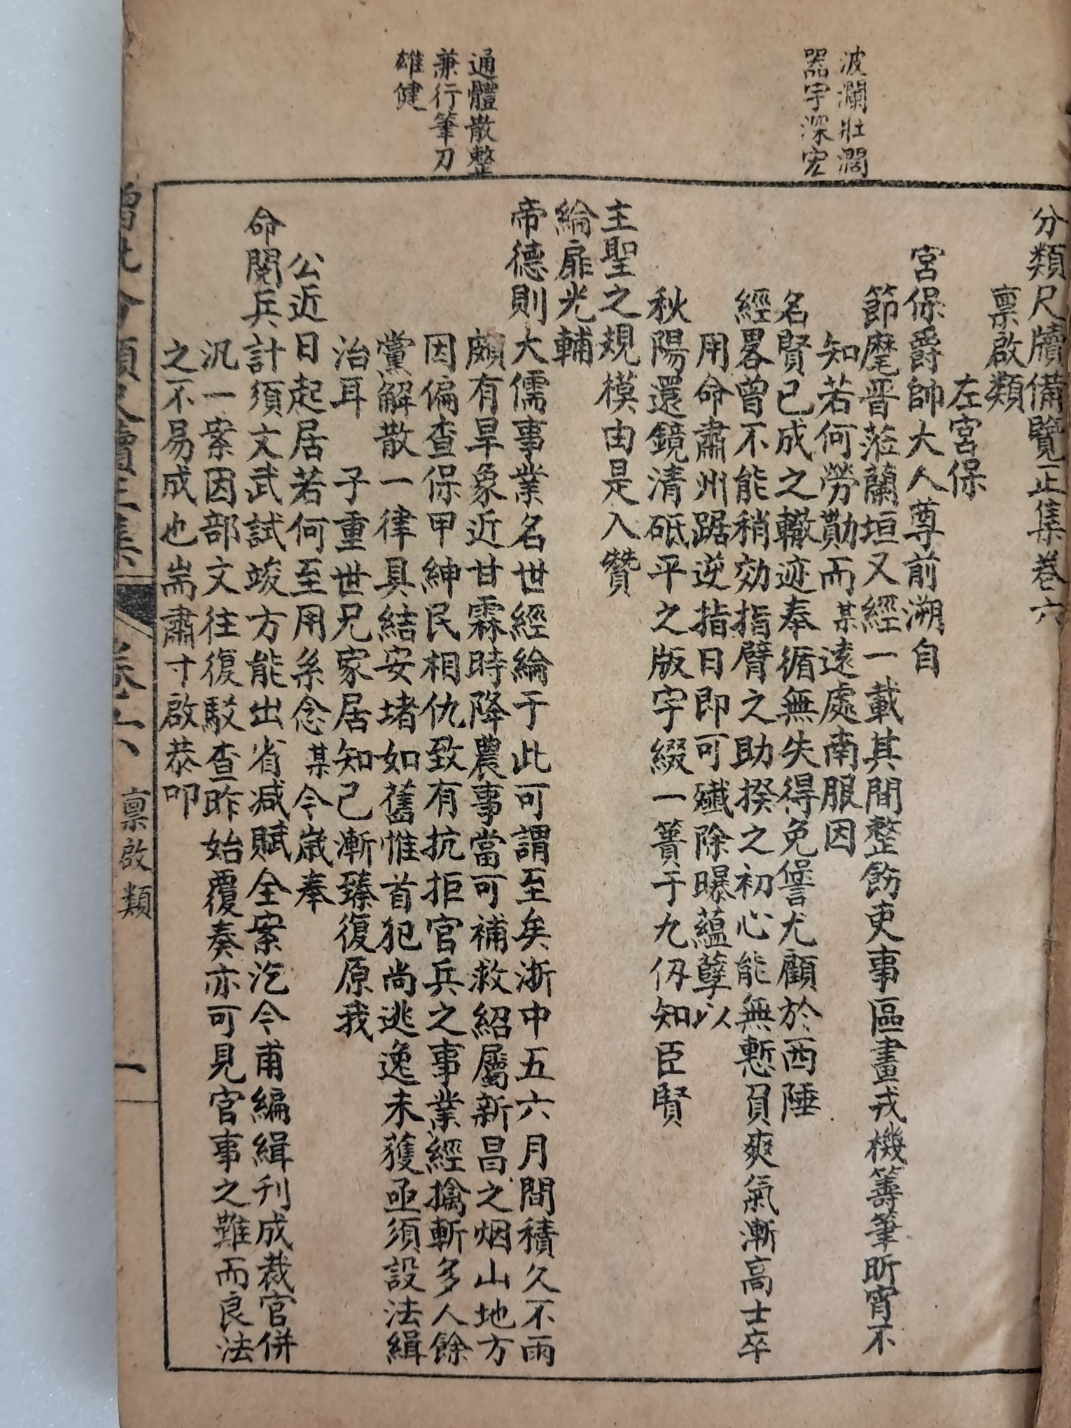 波瀾壯濶
器宇深宏
通體散整
兼行筆刀
雄健
分類尺牘備覽正集卷六
稟啟類
左宮保
宮保爵帥大人尊前溯自
節麾晋蒞蘭垣又經一載其間整飭吏事區畫戎機籌筆昕宵不
知若何勞勩而某遠處南服因
名賢已成之轍迹奉循無失得免諐尤顧於西陲
經畧曾不能稍効指臂之助揆之初心能無慙負爽氣漸高士卒
用命肅州踞逆指日即可殲除曝蘊孽以
秋陽還鏡清砥平之版宇綴一簣于九仭知臣賢
主聖之規模由是入贊
綸扉光輔
帝德則大儒事業名世經綸于此可謂至矣浙中五六月間積久不雨
頗有旱象近甘霖時降農事當可補救紹屬新昌之烟山地方
因偏查保甲紳民相仇致有抗拒官兵之事業經擒斬多人餘
黨解散一律具結安堵如舊惟首犯尚逃逸未獲亟須設法緝
治耳 子重世兄家居知己漸臻復原我
公近日起居若何至用系念某今歲奉
命閱兵計須文武試竣方能出省减賦全案汔今甫編緝刊成裁官併
汛一案因部文往復駁查昨始覆奏亦可見官事之難而良法
之不易成也耑肅寸啟恭叩
增批分類尺牘正集 卷六 稟啟類 一